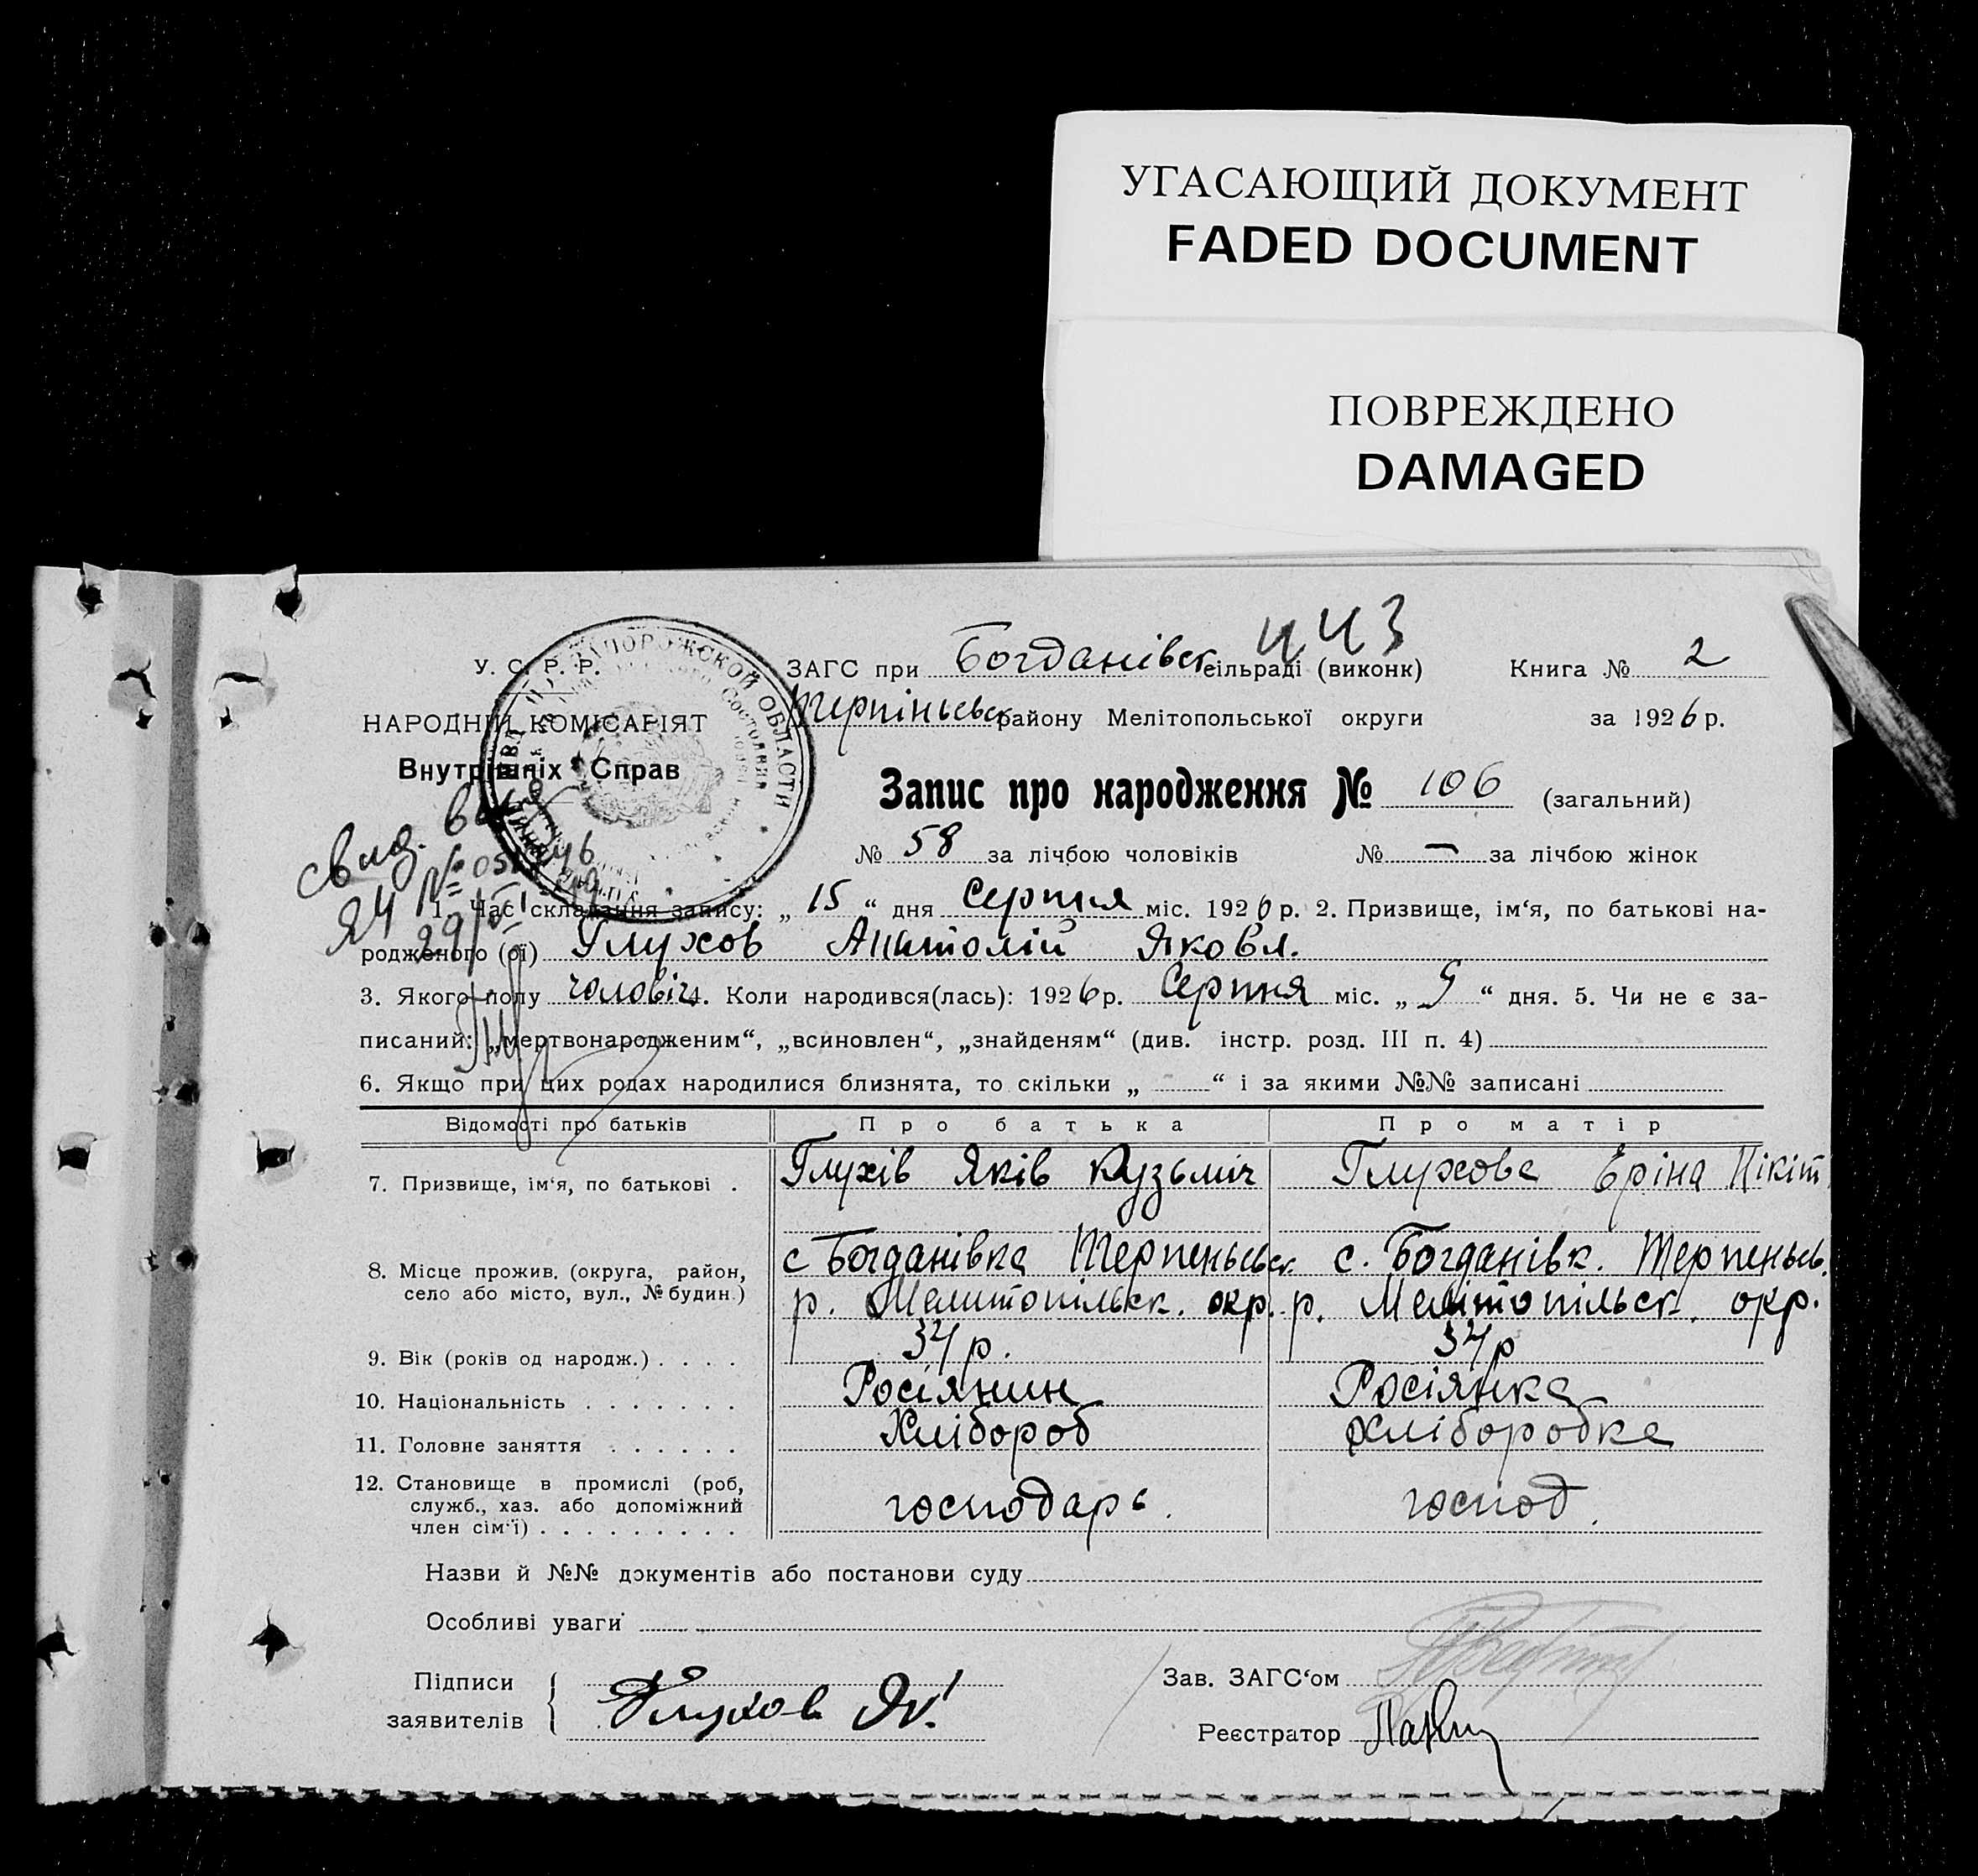 УГАСАЮЩИЙ ДОКУМЕНТ
FADED DOCUMENT
ПОВРЕЖДЕНО
DAMAGED
443
У. С. Р. Р.
НАРОДНІЙ КОМІСАРІЯТ
Внутрішніх Справ
ЗАПОРОЖСКОЙ ОБЛАСТИ
ЗАГС при Богданівск сільраді (виконк) Книга № 2
Терпіньевск району Мелітопольської округи за 1926 р.
Запис про народження № 106 (загальний)
№ 58 за лічбою чоловіків № — за лічбою жінок
свид.
ЯЧ №
1. Час складання запису: „ 15 “ дня Серпня міс. 1926 р. 2. Призвище, ім‘я, по батькові на-
родженого (ої) Глухов Анатолій Яковл.
3. Якого полу чоловіч. 4. Коли народився(лась): 1926 р. Серпня міс. „ 9 “ дня. 5. Чи не є за-
писаний: „мертвонародженим“, „всиновлен“, „знайденям“ (див. інстр. розд. III п. 4)
6. Якщо при цих родах народилися близнята, то скільки „ “ і за якими №№ записані
Відомості про батьків Про батька Про матір
7. Призвище, ім‘я, по батькові . Глухів Яків Кузьміч Глухова Еріна Нікіт
8. Місце прожив. (округа, район, с Богданівка Терпеньевск. с. Богданівк. Терпеньев.
село або місто, вул., № будин.) р. Мелитопільск. окр. р. Мелітопільск. окр.
9. Вік (років од народж.) . . . . 34 р. 34 р
10. Національність . . . . . . . Росіянин Росіянка
11. Головне заняття . . . . . . Хлібороб хлібородка
12. Становище в промислі (роб,
служб., хаз. або допоміжний господарь. господ.
член сім‘ї) . . . . . . . . .
Назви й №№ документів або постанови суду
Особливі уваги
Підписи
заявителів Глухов Як.
Зав. ЗАГС‘ом
Реєстратор